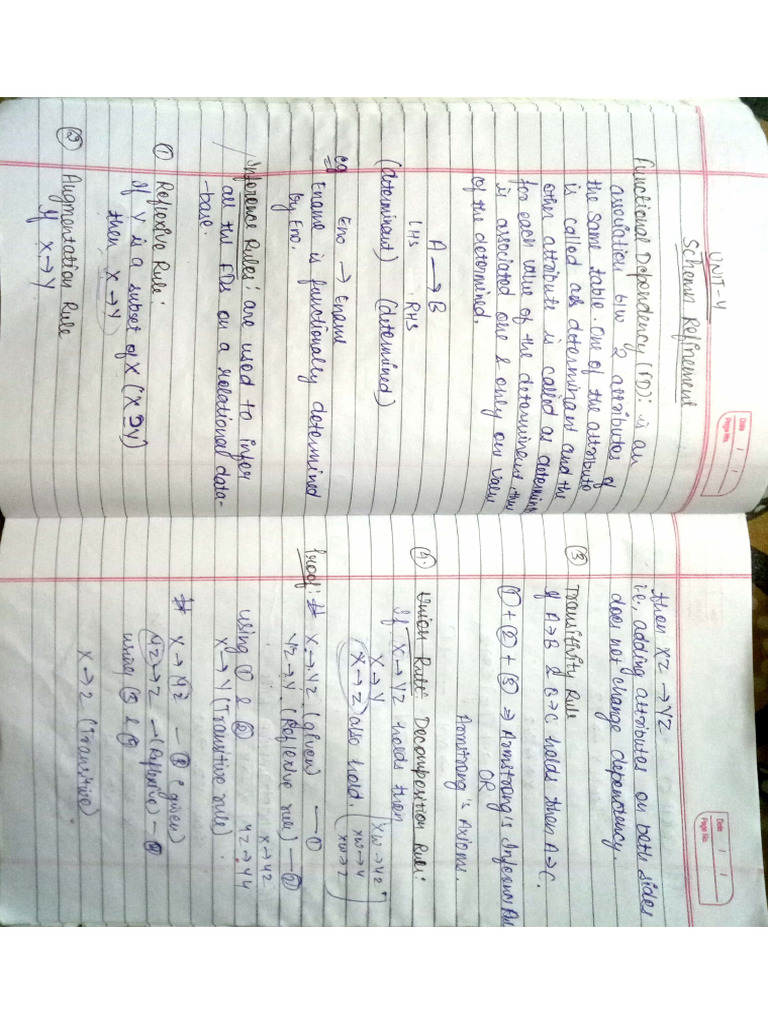 Date / /
Page No.
UNIT-4
Schema Refinement
Functional Dependency (FD): is an
association b/w 2 attributes of
the same table. One of the attribute
is called as determinant and the
other attribute is called as determin
for each value of the determinent, then
is associated one & only on value
of the determined.
A → B
LHS RHS
(determinant) (determined)
eg Eno → Ename
Ename is functionally determined
by Eno.
Inference Rules: are used to infer
all the FDs on a relational data-
-base.
① Reflexive Rule:
if Y is a subset of X (X⊇Y)
then X→Y
② Augmentation Rule
if X→Y
Date / /
Page No.
then XZ → YZ
i.e, adding attributes on both sides
does not change dependency.
③ Transitivity Rule
if A→B & B→C holds then A→C.
①+②+③ ⇒ Armstrong's Inference
OR
Armstrong's Axioms.
4. Union Rule Decomposition Rule:
If X→YZ holds then
X→Y
X→Z also hold.
XW→YZ
XW→Y
XW→Z
Proof: # X→YZ (given) — ①
YZ→Y (Reflexive rule) — ②
X→YZ
using ① & ② YZ→Y
X→Y (Transitive rule).
# X→YZ — ① (given)
YZ→Z — (Reflexive) — ②
using ① & ②
X→Z (Transitive)